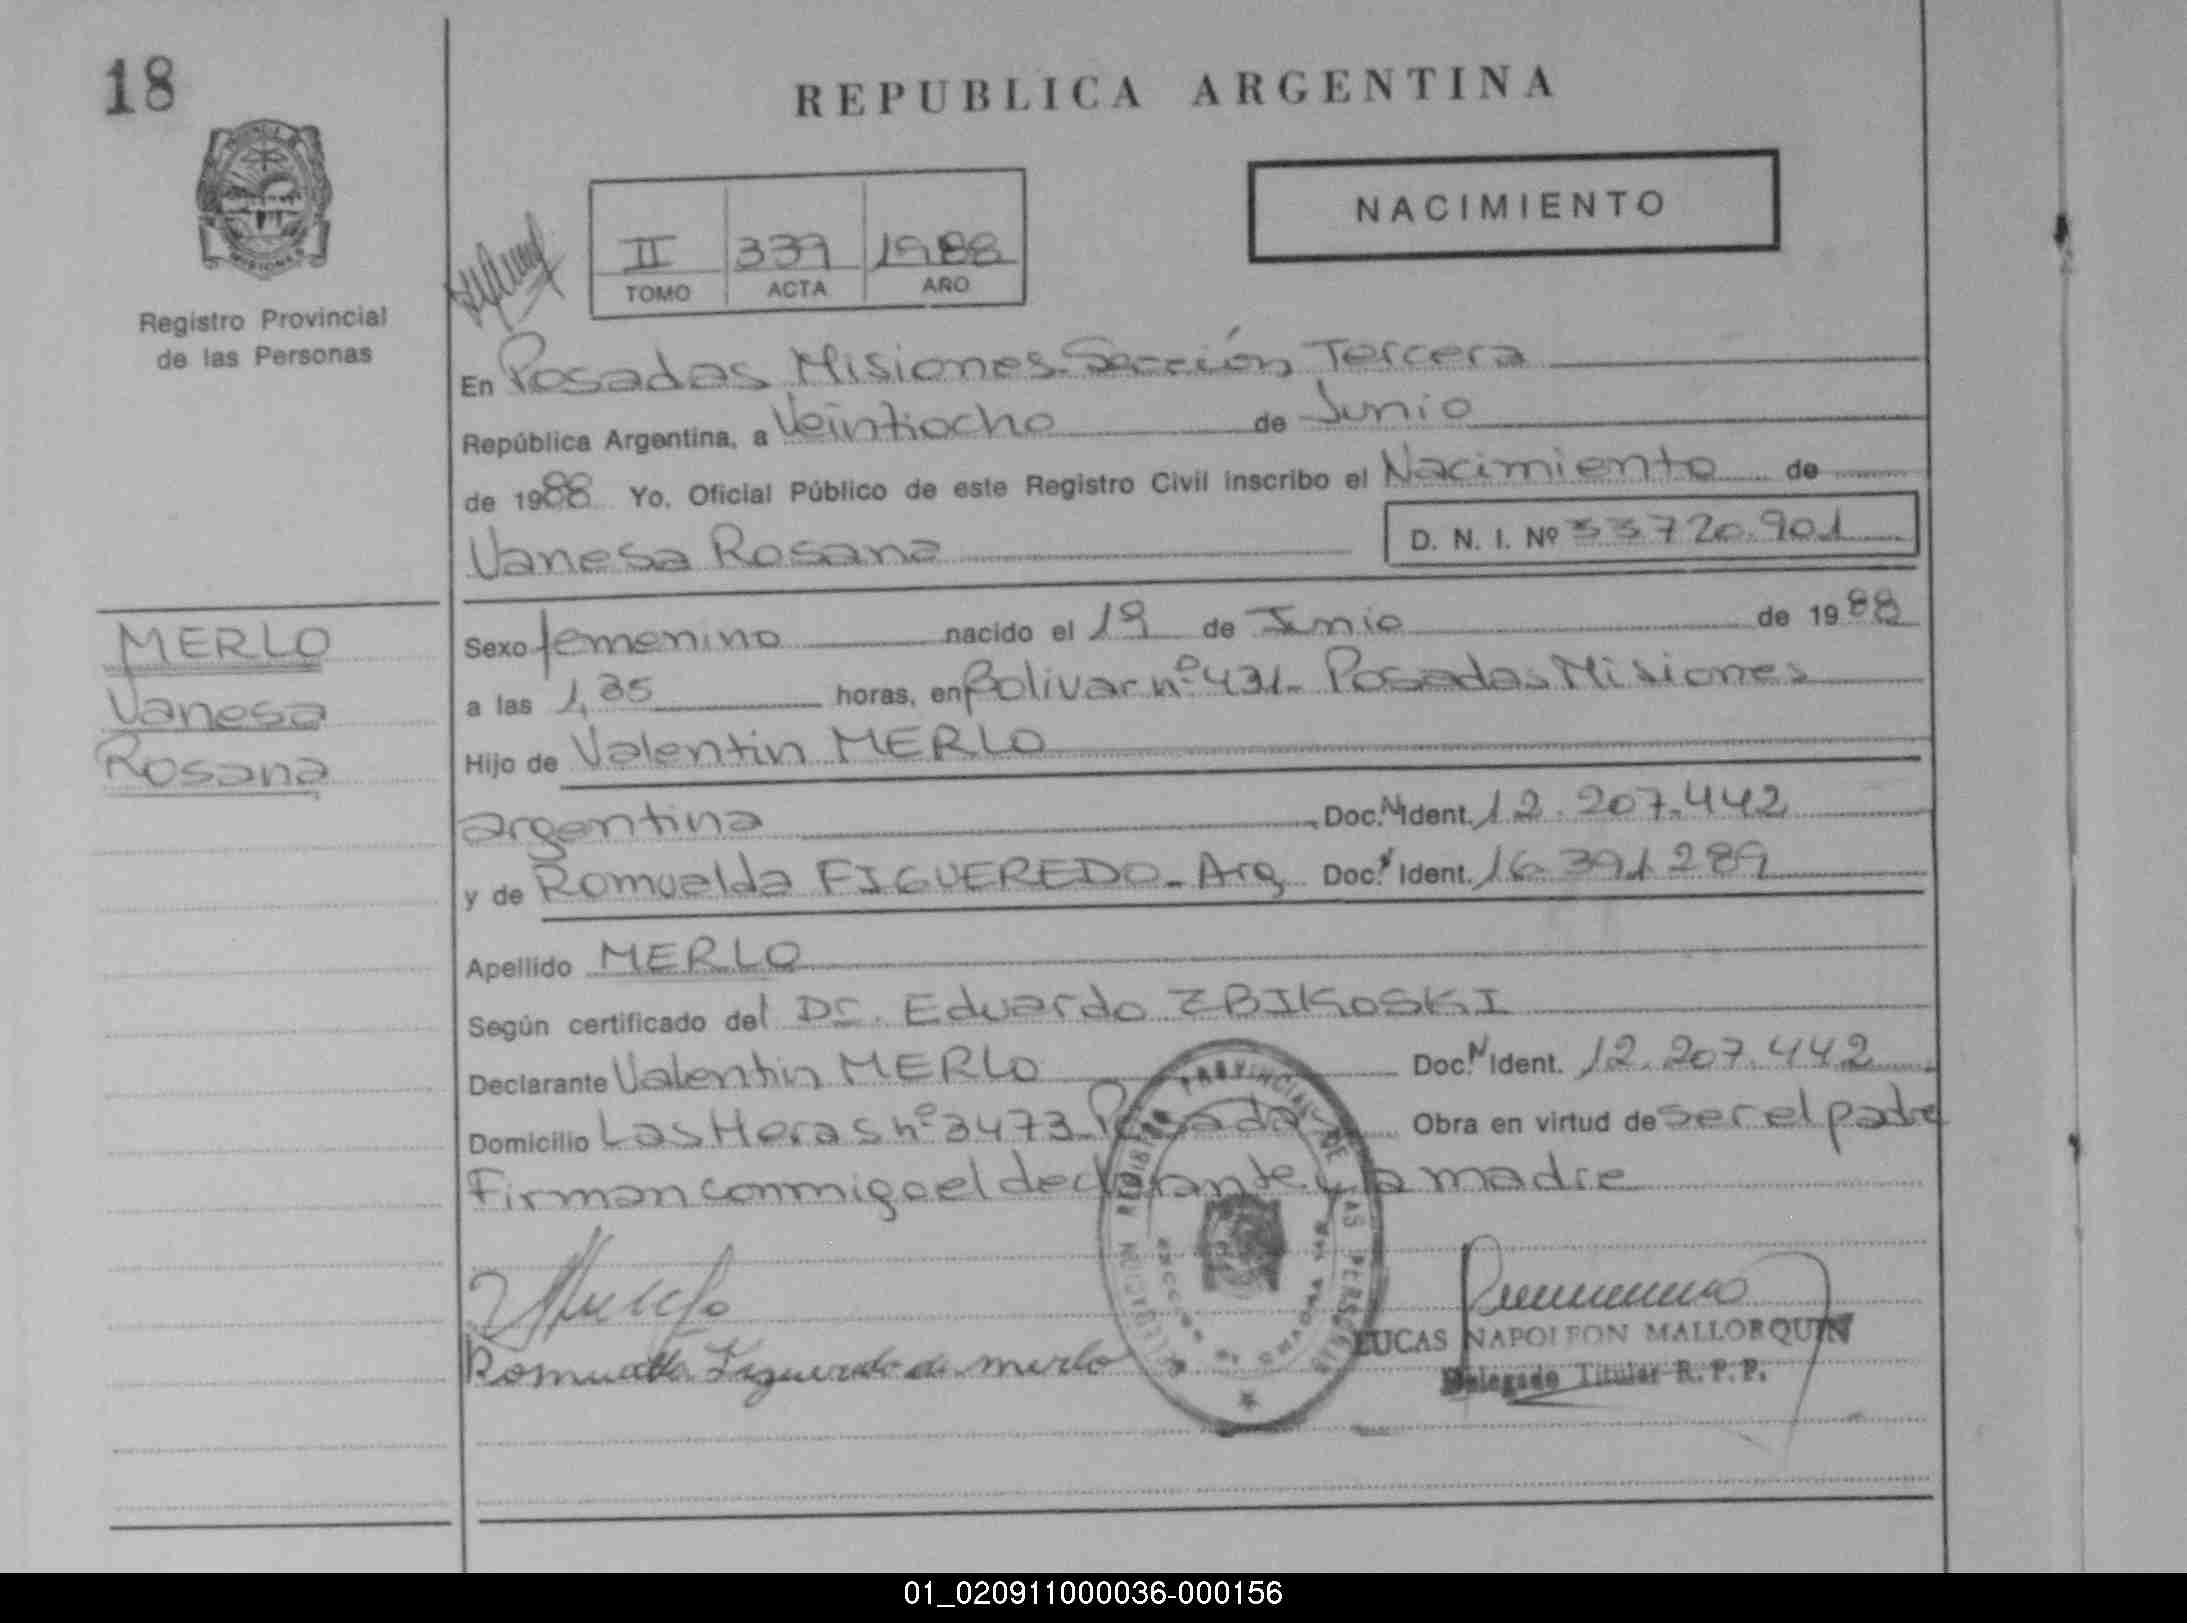 18
REPUBLICA ARGENTINA
NACIMIENTO
II 339 1988
TOMO ACTA AÑO
MISIONES
Registro Provincial
de las Personas
En Posadas Misiones. Sección Tercera
República Argentina, a Veintiocho de Junio
de 1988 Yo, Oficial Público de este Registro Civil inscribo el Nacimiento de
Vanesa Rosana D. N. I. Nº 33720.901
MERLO
Vanesa
Rosana
Sexo femenino nacido el 19 de Junio de 1988
a las 1,35 horas, en Bolivar nº 431- Posadas Misiones
Hijo de Valentin MERLO
argentina Doc. N. Ident. 12.207.442
y de Romualda FIGUEREDO - Arg Doc. Ident. 16.391.289
Apellido MERLO
Según certificado del Dr. Eduardo ZBIKOSKI
Declarante Valentin MERLO Doc. N. Ident. 12.207.442
Domicilio Las Heras nº 3473 Posadas Obra en virtud de ser el padre
Firman conmigo el declarante y la madre
REGISTRO PROVINCIAL DE LAS PERSONAS
Romualda Figueredo de merlo
LUCAS NAPOLEON MALLORQUIN
Delegado Titular R. P. P.
01_020911000036-000156